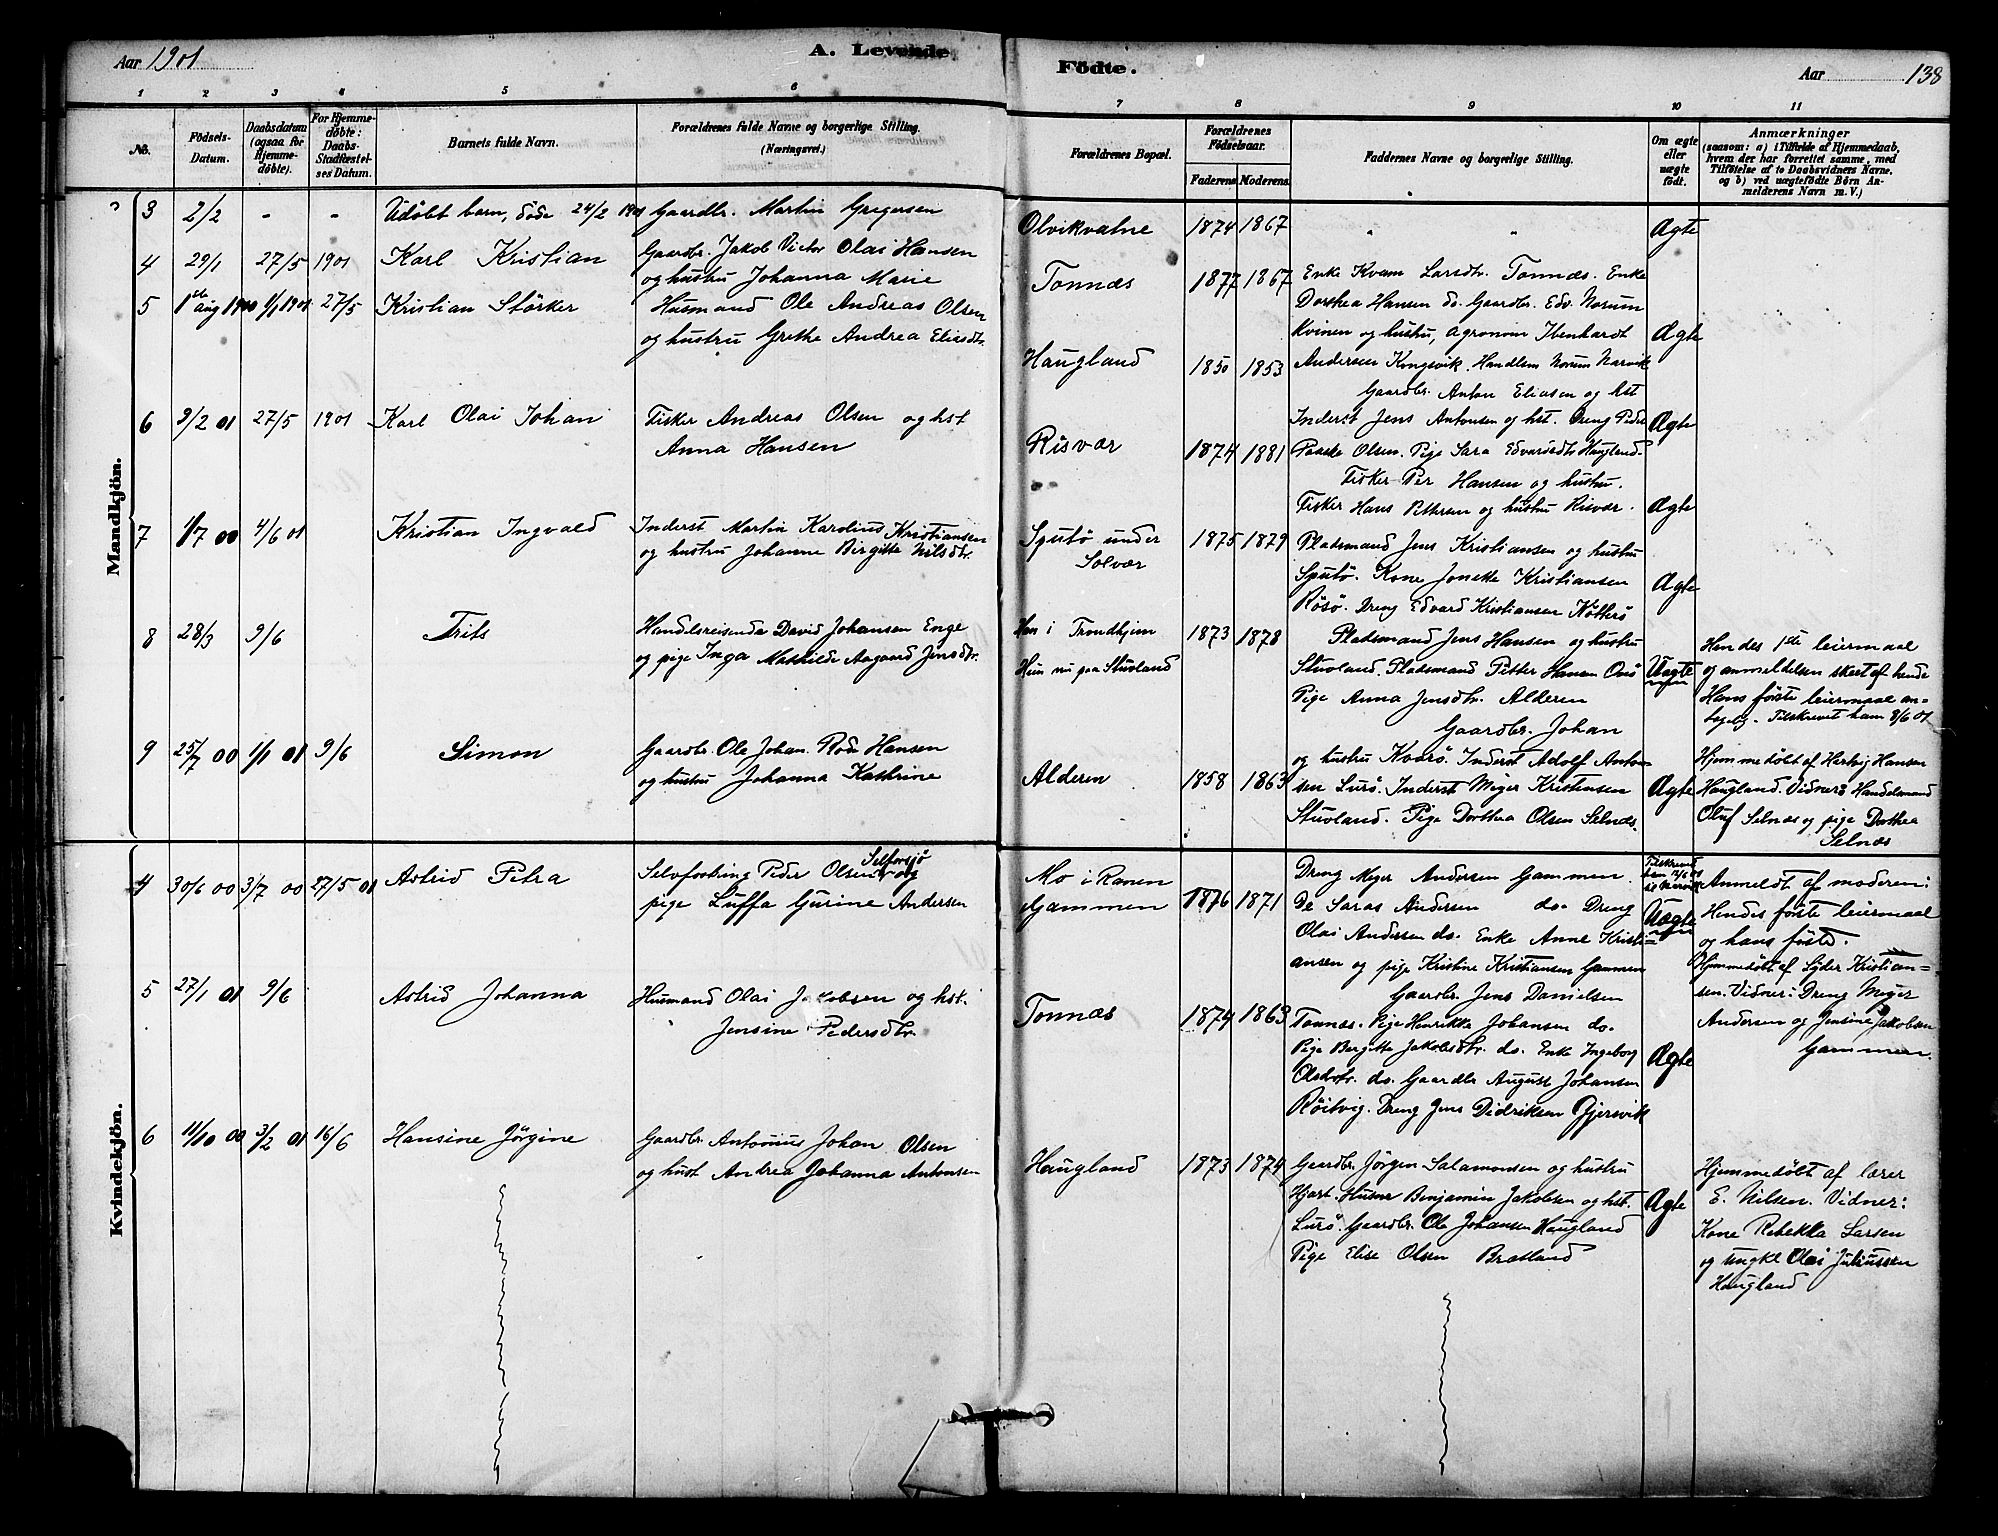 Aar 1901
A. Levende
Födte.
Aar 138
1 2 3 4 5 6 7 8 9 10 11
No.
Födsels-Datum.
Daabsdatum (ogsaa for Hjemmedöbte).
For Hjemmedöbte: Daabs-Stadfæstelses Datum.
Barnets fulde Navn.
Forældrenes fulde Navne og borgerlige Stilling.
(Næringsvei.)
Forældrenes Bopæl.
Forældrenes Födselsaar.
Faderens. Moderens.
Faddernes Navne og borgerlige Stilling.
Om ægte eller uægte födt.
Anmærkninger
(saasom: a) i Tilfælde af Hjemmedaab, hvem der har forrettet samme, med Tilföielse af to Daabsvidners Navne, og b) ved uægtefödte Börn Anmelderens Navn m. V.)
Mandkjön.
3 2/2 - - Udöbt barn, döde 24/2 1901 Gaardbr. Martin Gregersen
Olvikvatne 1874 1867 " " Ægte
4 29/1 27/5 1901 Karl Kristian Gaardbr. Jakob Victor Olai Hansen
og hustru Johanna Marie
Tonnæs 1877 1867 Enke Kvam Larsdtr. Tonnæs. Enke
Dorthea Hansen do. Gaardbr. Edv. Norum
Kvinen og hustru, Agronom Ibenhardt Ægte
5 1ste Aug 1900 1/1 1901 27/5 Kristian Störker Husmand Ole Andreas Olsen
og hustru Grethe Andrea Eliasdtr.
Haugland 1850 1853 Andersen Kongsvik. Handlem Norum Narvik
Gaardbr. Anton Eliasen og hst
Inderst Jens Antonsen og hst. Dreng Peder Ægte
6 2/2 01 27/5 1901 Karl Olai Johan Fisker Andreas Olsen og hst
Anna Hansen
Risvær 1874 1881 Paaske Olsen. Pige Sara Edvardsdtr Haugland.
Fisker Per Hansen og hustru.
Fisker Hans Pettersen og hustru Risvær. Ægte
7 1/7 00 4/6 01 Kristian Ingvald Inderst Martin Karolius Kristiansen
og hustru Johanne Birgitte Nilsdtr.
Sputö under
Solvær 1875 1879 Pladsmand Jens Kristiansen og hustru
Sputö. Kone Jonette Kristiansen
Rösö. Dreng Edvard Kristiansen Kötterö Ægte
8 28/3 9/6 Frits Handelsreisende David Johansen Enge
og pige Inga Mathilde Aagaard Jensdtr.
Han i Trondhjem
Hun nu paa Stuvland 1873 1878 Pladsmand Jens Hansen og hustru
Stuvland. Pladsmand Petter Hansen Onö Uægte
Pige Anna Jensdtr. Alderen
Hendes 1ste leiermaal
og anmeldelsen skeet af hende
Hans förste leiermaal an-
tagelig. Tilskrevet ham 8/6 01
9 25/7 00 1/1 01 9/6 Simon Gaardbr. Ole Johan Rode Hansen
og hustru Johanna Kathrine
Alderen 1858 1863 Gaardbr. Johan
og hustru Kvarö. Inderst Adolf Anton
sen Lurö. Inderst Meyer Kristensen Ægte
Stuvland. Pige Dorthea Olsen Selnæs.
Hjemmedöbt af Hertvig Hansen
Haugland. Vidner: Handelsmand
Oluf Selnæs og pige Dorthea
Selnæs
Kvindekjön.
4 30/6 00 3/7 00 27/5 01 Astrid Petra Selvforbring Peder Olsen Selforsjö og
pige Luffa Gurine Andersen
Mo i Ranen
Gammen 1876 1871 Dreng Meyer Andersen Gammen.
De Saras Andersen do. Dreng
Olai Andersen do. Enke Anne Kristi-
ansen og pige Kristine Kristiansen Gammen
Uægte
Anmeldt af moderen:
Hendes förste leiermaal
og hans förste.
5 27/1 01 9/6 Astrid Johanna Husmand Olai Jakobsen og hst.
Jensine Pedersdtr.
Tonnæs 1874 1863 Gaardbr. Jens Danielsen
Tonnæs. Pige Henrikka Johansen do.
Pige Bergitte Jakobsdtr. do. Enke Ingeborg Ægte
Olsdtr. do. Gaardbr August Johansen
Röitvig. Dreng Jens Didriksen Gjersvik
Hjemmedöbt af Lyder Kristian=
sen. Vidner: Dreng Meyer
Andersen og Jensine Jakobsen
Gammen.
6 11/10 00 3/2 01 16/6 Hansine Jörgine Gaardbr Antonius Johan Olsen
og hust Andrea Johanna Antonsen
Haugland 1873 1874 Gaardbr. Jörgen Salamonsen og hustru
Hjart. Husmr Benjamin Jakobsen og hst.
Lurö. Gaardbr. Ole Johansen Haugland Ægte
Pige Elise Olsen Bratland
Hjemmedöbt af lærer
E. Nilsen. Vidner:
Kone Rebekka Larsen
og ungkl Olai Juliussen
Haugland